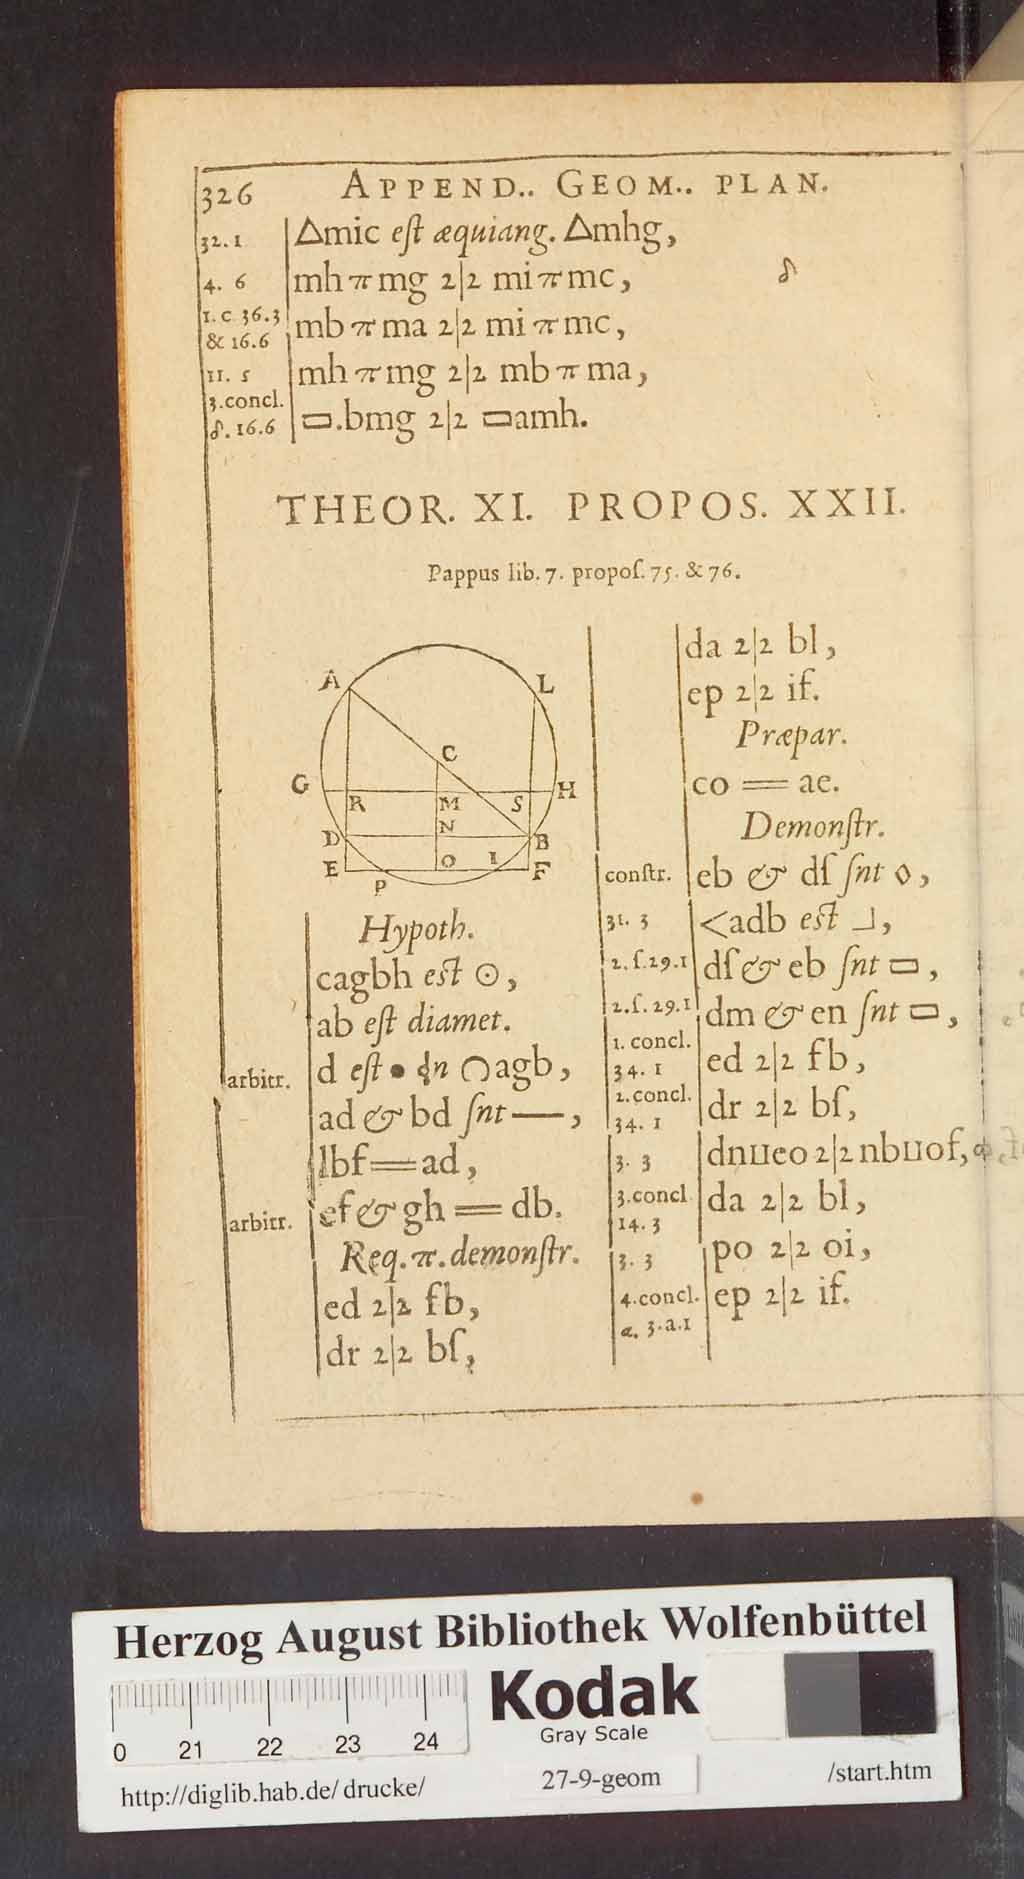 326 APPEND.. GEOM.. PLAN.
32. 1 △mic eſt æquiang. △mhg,
4. 6 mh π mg 2|2 mi π mc, δ
1. c. 36.3
& 16.6 mb π ma 2|2 mi π mc,
11. 5 mh π mg 2|2 mb π ma,
3.concl.
δ. 16.6 ▭.bmg 2|2 ▭amh.
THEOR. XI. PROPOS. XXII.
Pappus lib. 7. propoſ. 75. & 76.
A L
C
G R M S H
N
D B
E O I F
P
Hypoth.
cagbh eſt ⊙,
ab eſt diamet.
arbitr. d eſt • in ⌒agb,
ad & bd ſnt —,
lbf = ad,
arbitr. ef & gh = db.
Req. π. demonſtr.
ed 2|2 fb,
dr 2|2 bſ,
da 2|2 bl,
ep 2|2 if.
Præpar.
co = ae.
Demonſtr.
conſtr. eb & dſ ſnt ◊,
31. 3 <adb eſt ⅃,
2. ſ. 29.1 dſ & eb ſnt ▭,
2. ſ. 29.1 dm & en ſnt ▭,
1. concl.
34. 1 ed 2|2 fb,
2. concl.
34. 1 dr 2|2 bſ,
3. 3 dn⊔eo 2|2 nb⊔of,
3.concl
14. 3 da 2|2 bl,
3. 3 po 2|2 oi,
4.concl.
α. 3.a.1 ep 2|2 if.
Herzog August Bibliothek Wolfenbüttel
Kodak
Gray Scale
0 21 22 23 24
http://diglib.hab.de/ drucke/ 27-9-geom /start.htm